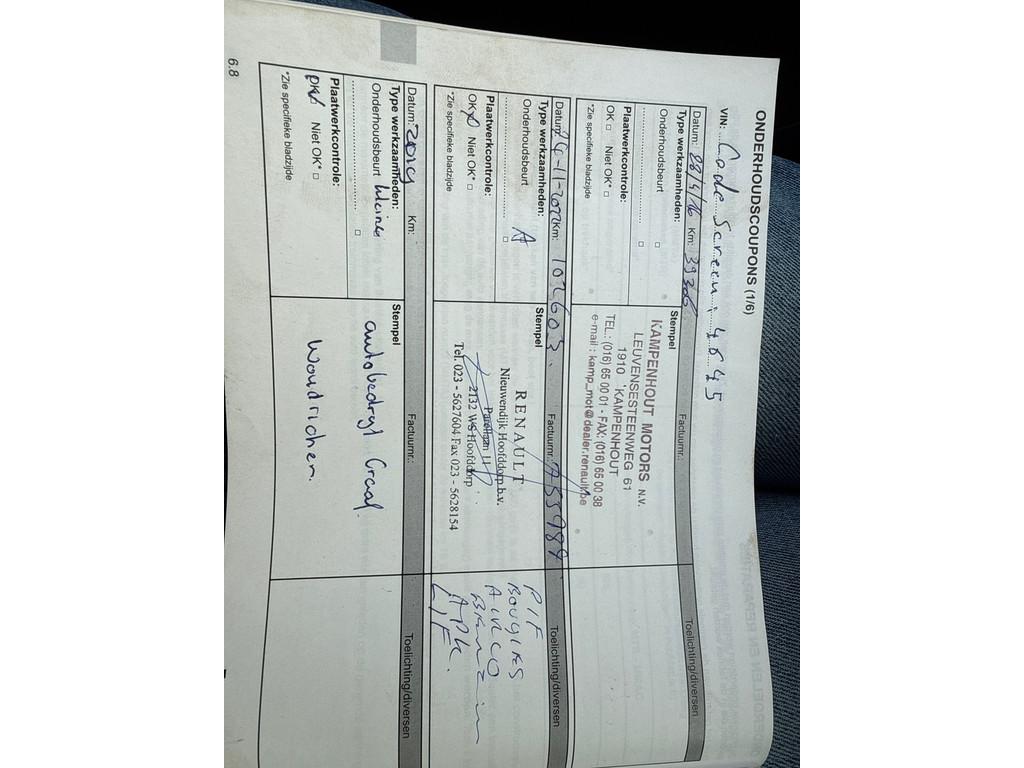 ONDERHOUDSCOUPONS (1/6)
VIN: Code Screen: 4645
Datum: 28/4/16 Km: 39306 Factuurnr.: Toelichting/diversen
Type werkzaamheden:
Onderhoudsbeurt □
□
Plaatwerkcontrole:
OK □ Niet OK* □
*Zie specifieke bladzijde
Stempel
KAMPENHOUT MOTORS N.V.
LEUVENSESTEENWEG 61
1910 KAMPENHOUT
TEL.: (016) 65 00 01 - FAX: (016) 65 00 38
e-mail : kamp_mot@dealer.renault.be
Datum: 24-11-2022 Km: 102603. Factuurnr.: 755989 Toelichting/diversen
Type werkzaamheden:
Onderhoudsbeurt A
□
Plaatwerkcontrole:
OK Niet OK* □
*Zie specifieke bladzijde
Stempel
RENAULT
Nieuwendijk Hoofddorp b.v.
Parellaan 11
2132 WS Hoofddorp
Tel. 023 - 5627604 Fax 023 - 5628154
PIF
BOUGIES
AIRCO
APK.
LIF
Datum: 2019 Km: Factuurnr.: Toelichting/diversen
Type werkzaamheden:
Onderhoudsbeurt kleine
□
Plaatwerkcontrole:
OK Niet OK* □
*Zie specifieke bladzijde
Stempel
autobedryf Graaf.
Woudrichem.
6.8